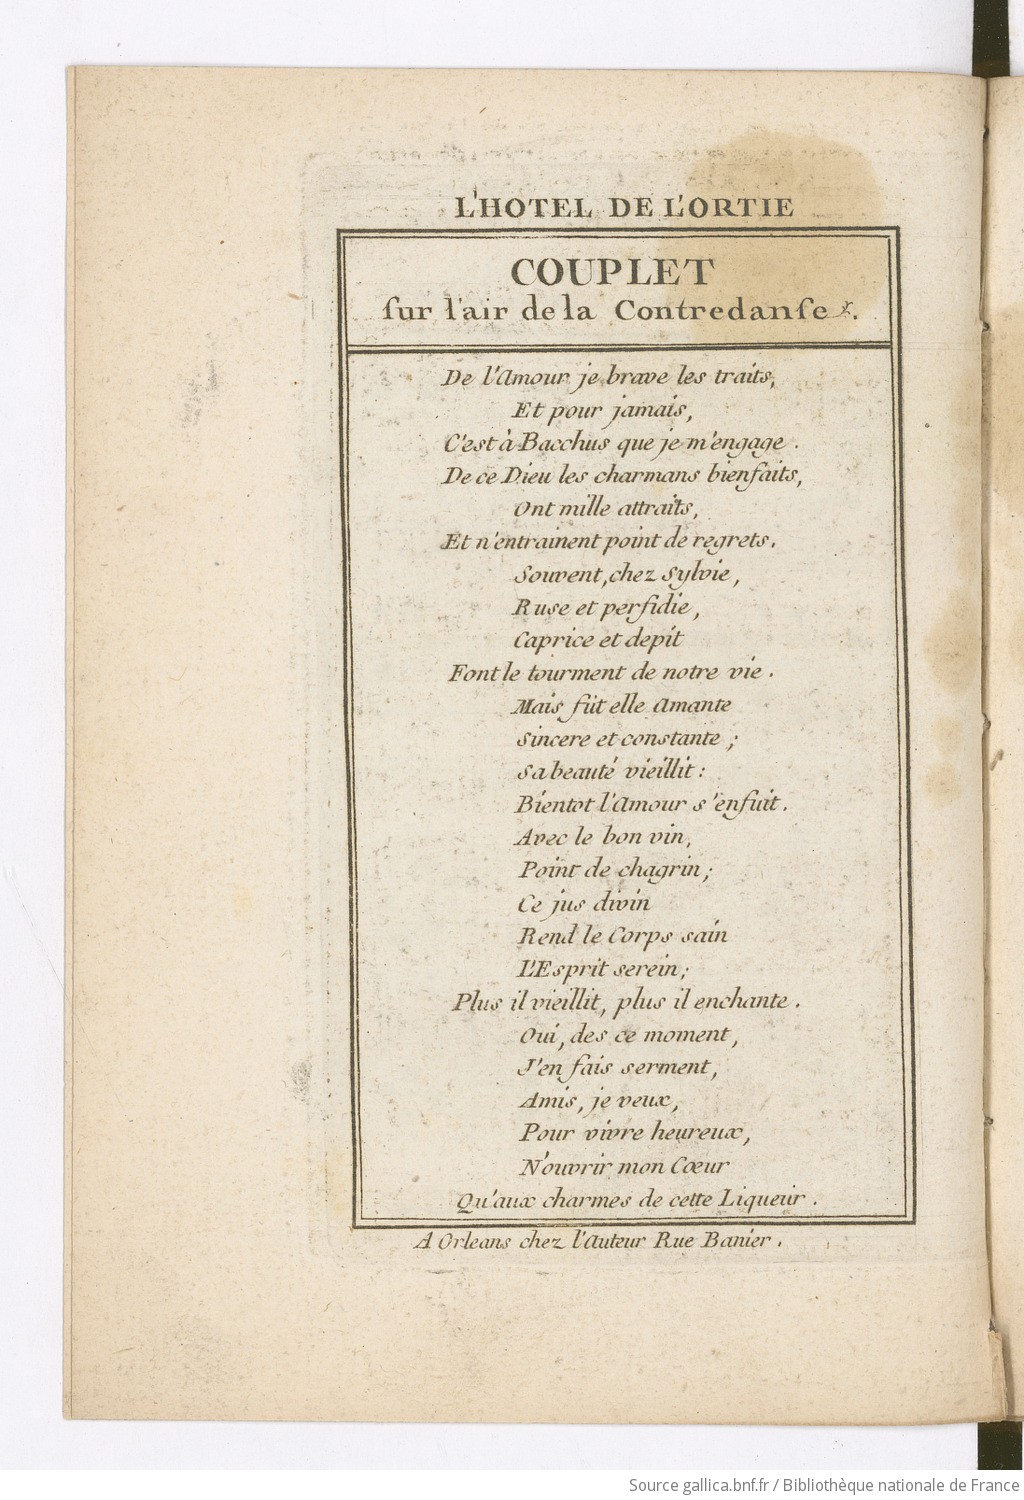 L'HOTEL DE L'ORTIE
COUPLET
sur l'air de la Contredanse.
De l'Amour je brave les traits,
Et pour jamais,
C'est à Bacchus que je m'engage.
De ce Dieu les charmans bienfaits,
Ont mille attraits,
Et n'entrainent point de regrets.
Souvent, chez Sylvie,
Ruse et perfidie,
Caprice et depit
Font le tourment de notre vie.
Mais fût elle Amante
Sincere et constante;
Sa beauté vieillit:
Bientot l'Amour s'enfuit.
Avec le bon vin,
Point de chagrin;
Ce jus divin
Rend le Corps sain
L'Esprit serein;
Plus il vieillit, plus il enchante.
Oui, des ce moment,
J'en fais serment,
Amis, je veux,
Pour vivre heureux,
N'ouvrir mon Cœur
Qu'aux charmes de cette Liqueur.
A Orleans chez l'Auteur Rue Banier.
Source gallica.bnf.fr / Bibliothèque nationale de France